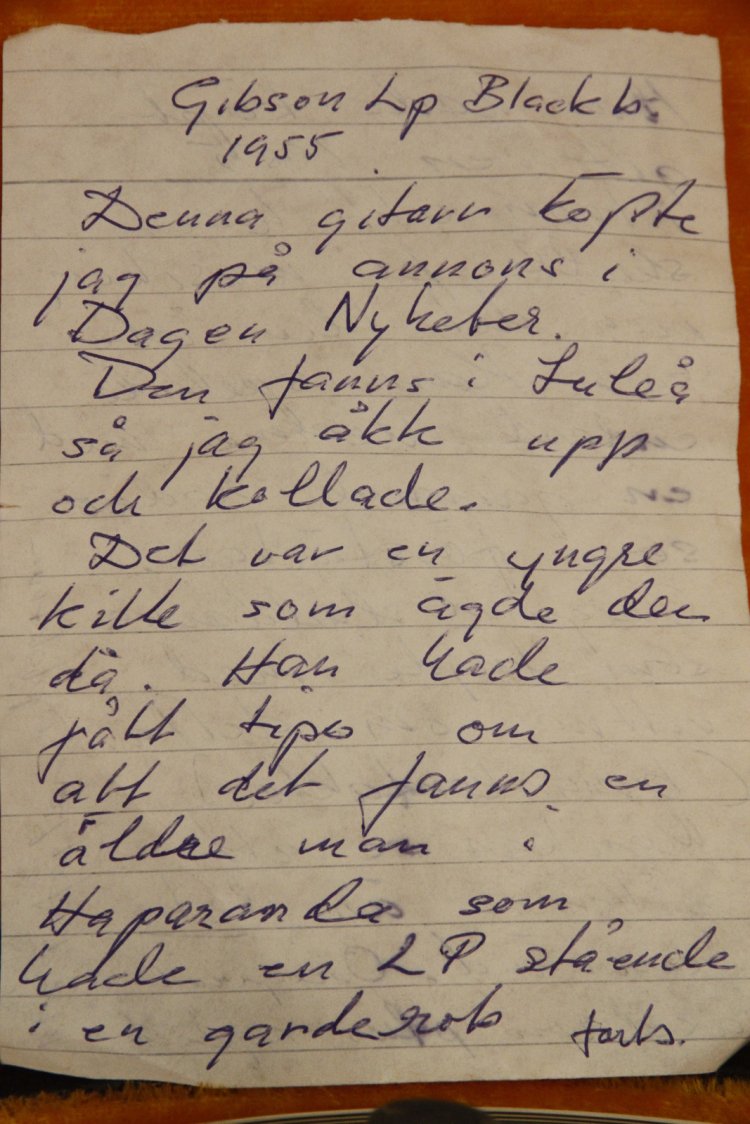 Gibson Lp Blackb.
1955
Denna gitarr köpte
jag på annons i
Dagen Nyheter.
Den fanns i Luleå
så jag åkk upp
och kollade.
Det var en yngre
kille som ägde den
då. Han hade
fått tips om
att det fanns en
äldre man i
Haparanda som
hade en LP stående
i en garderob forts.